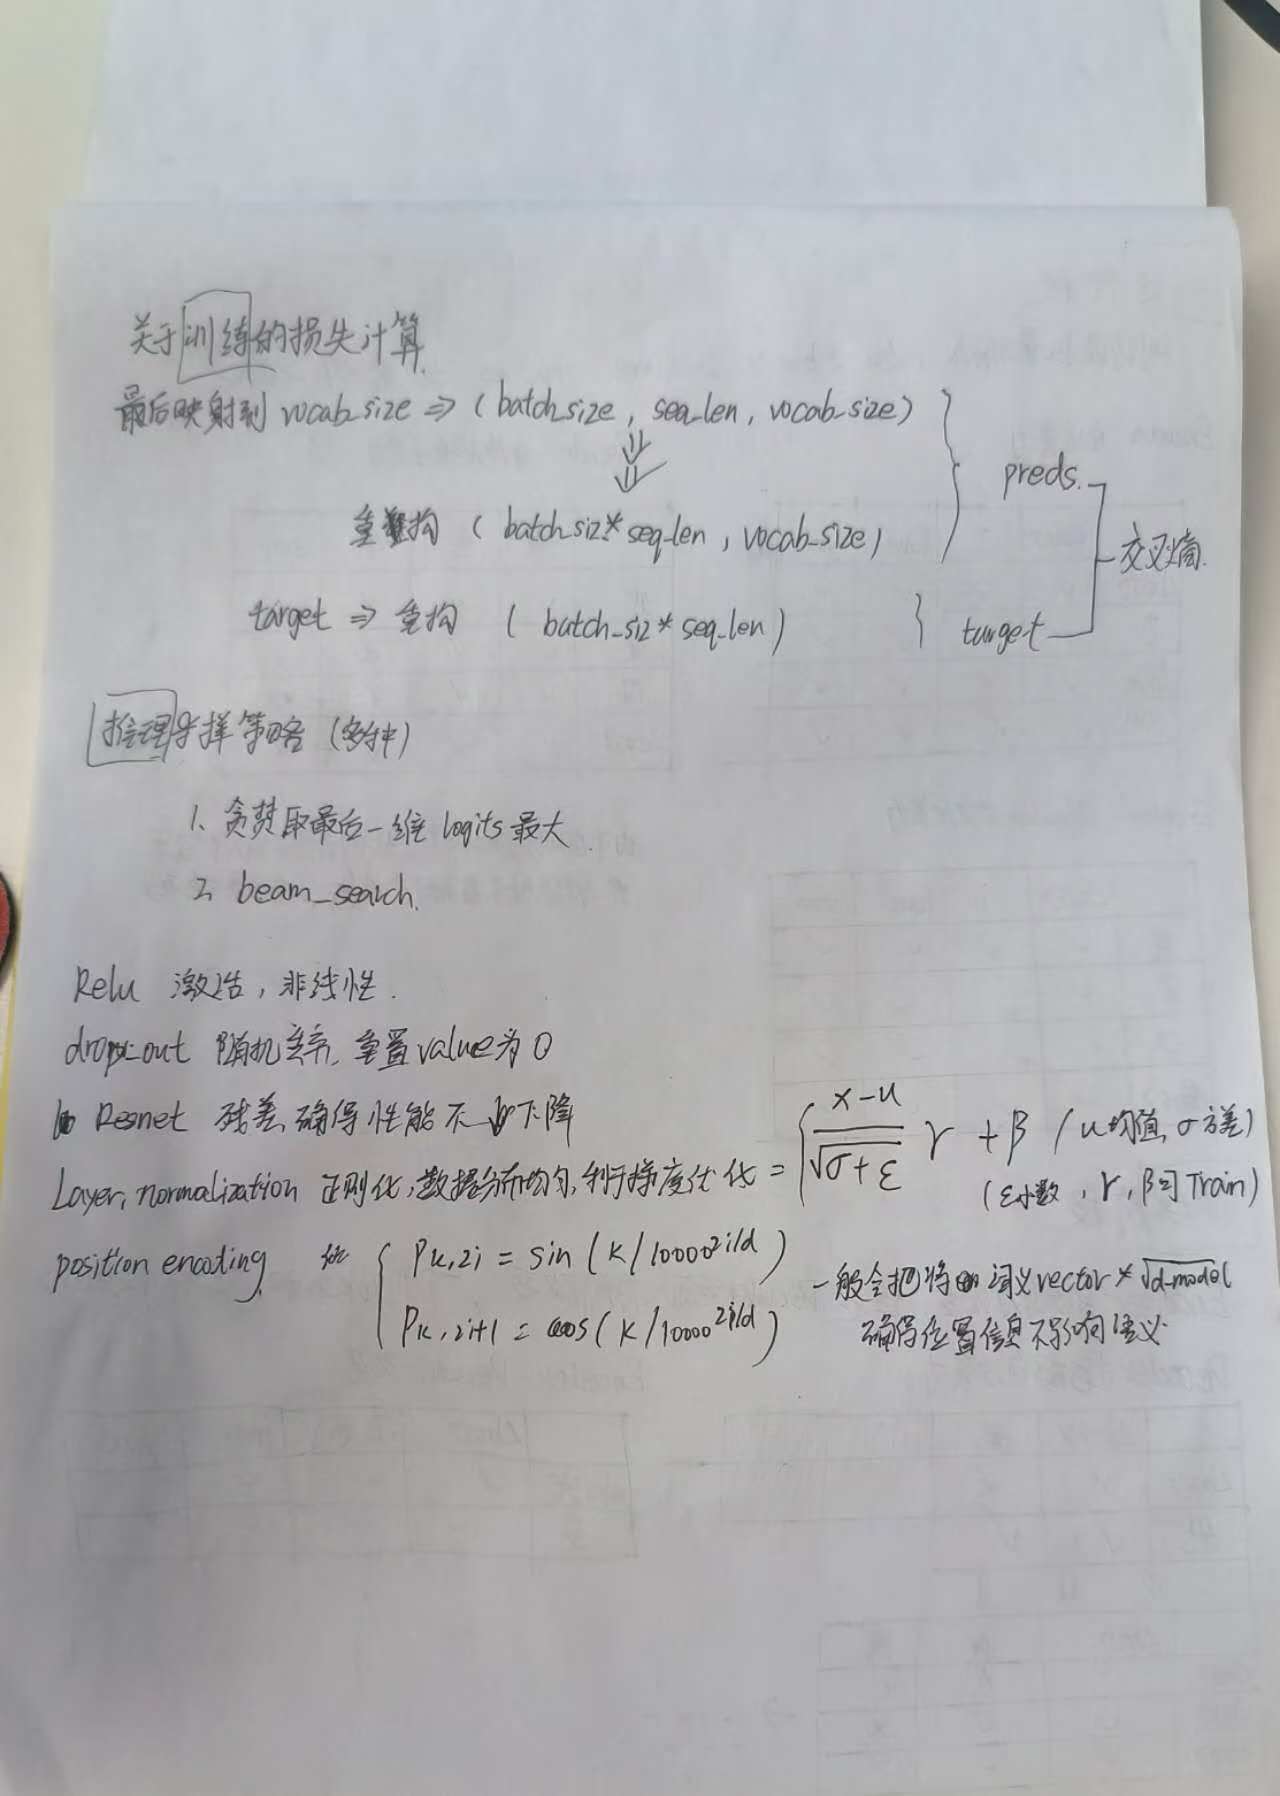 关于训练的损失计算.
最后映射到 vocab_size ⇒ (batch_size, seq_len, vocab_size)
preds.
重构 (batch_siz*seq_len, vocab_size)
交叉熵.
target ⇒ 重构 (batch_siz*seq_len)
target
推理采样策略
1、贪婪取最后一维 logits 最大.
2、beam_search.
Relu 激活, 非线性.
drop-out 随机丢弃, 重置value为0
Resnet 残差, 确保性能不下降
Layer, normalization 正则化, 数据分布均匀, 利于梯度优化 = (x-u)/√(σ+ε) γ + β (u均值, σ方差)
(ε小数, γ, β可Train)
position encoding. { Pk,2i = sin (k/10000^2i/d)
Pk,2i+1 = cos(k/10000^2i/d)
一般会把将词义vector*√d-model
确保位置信息不影响语义.